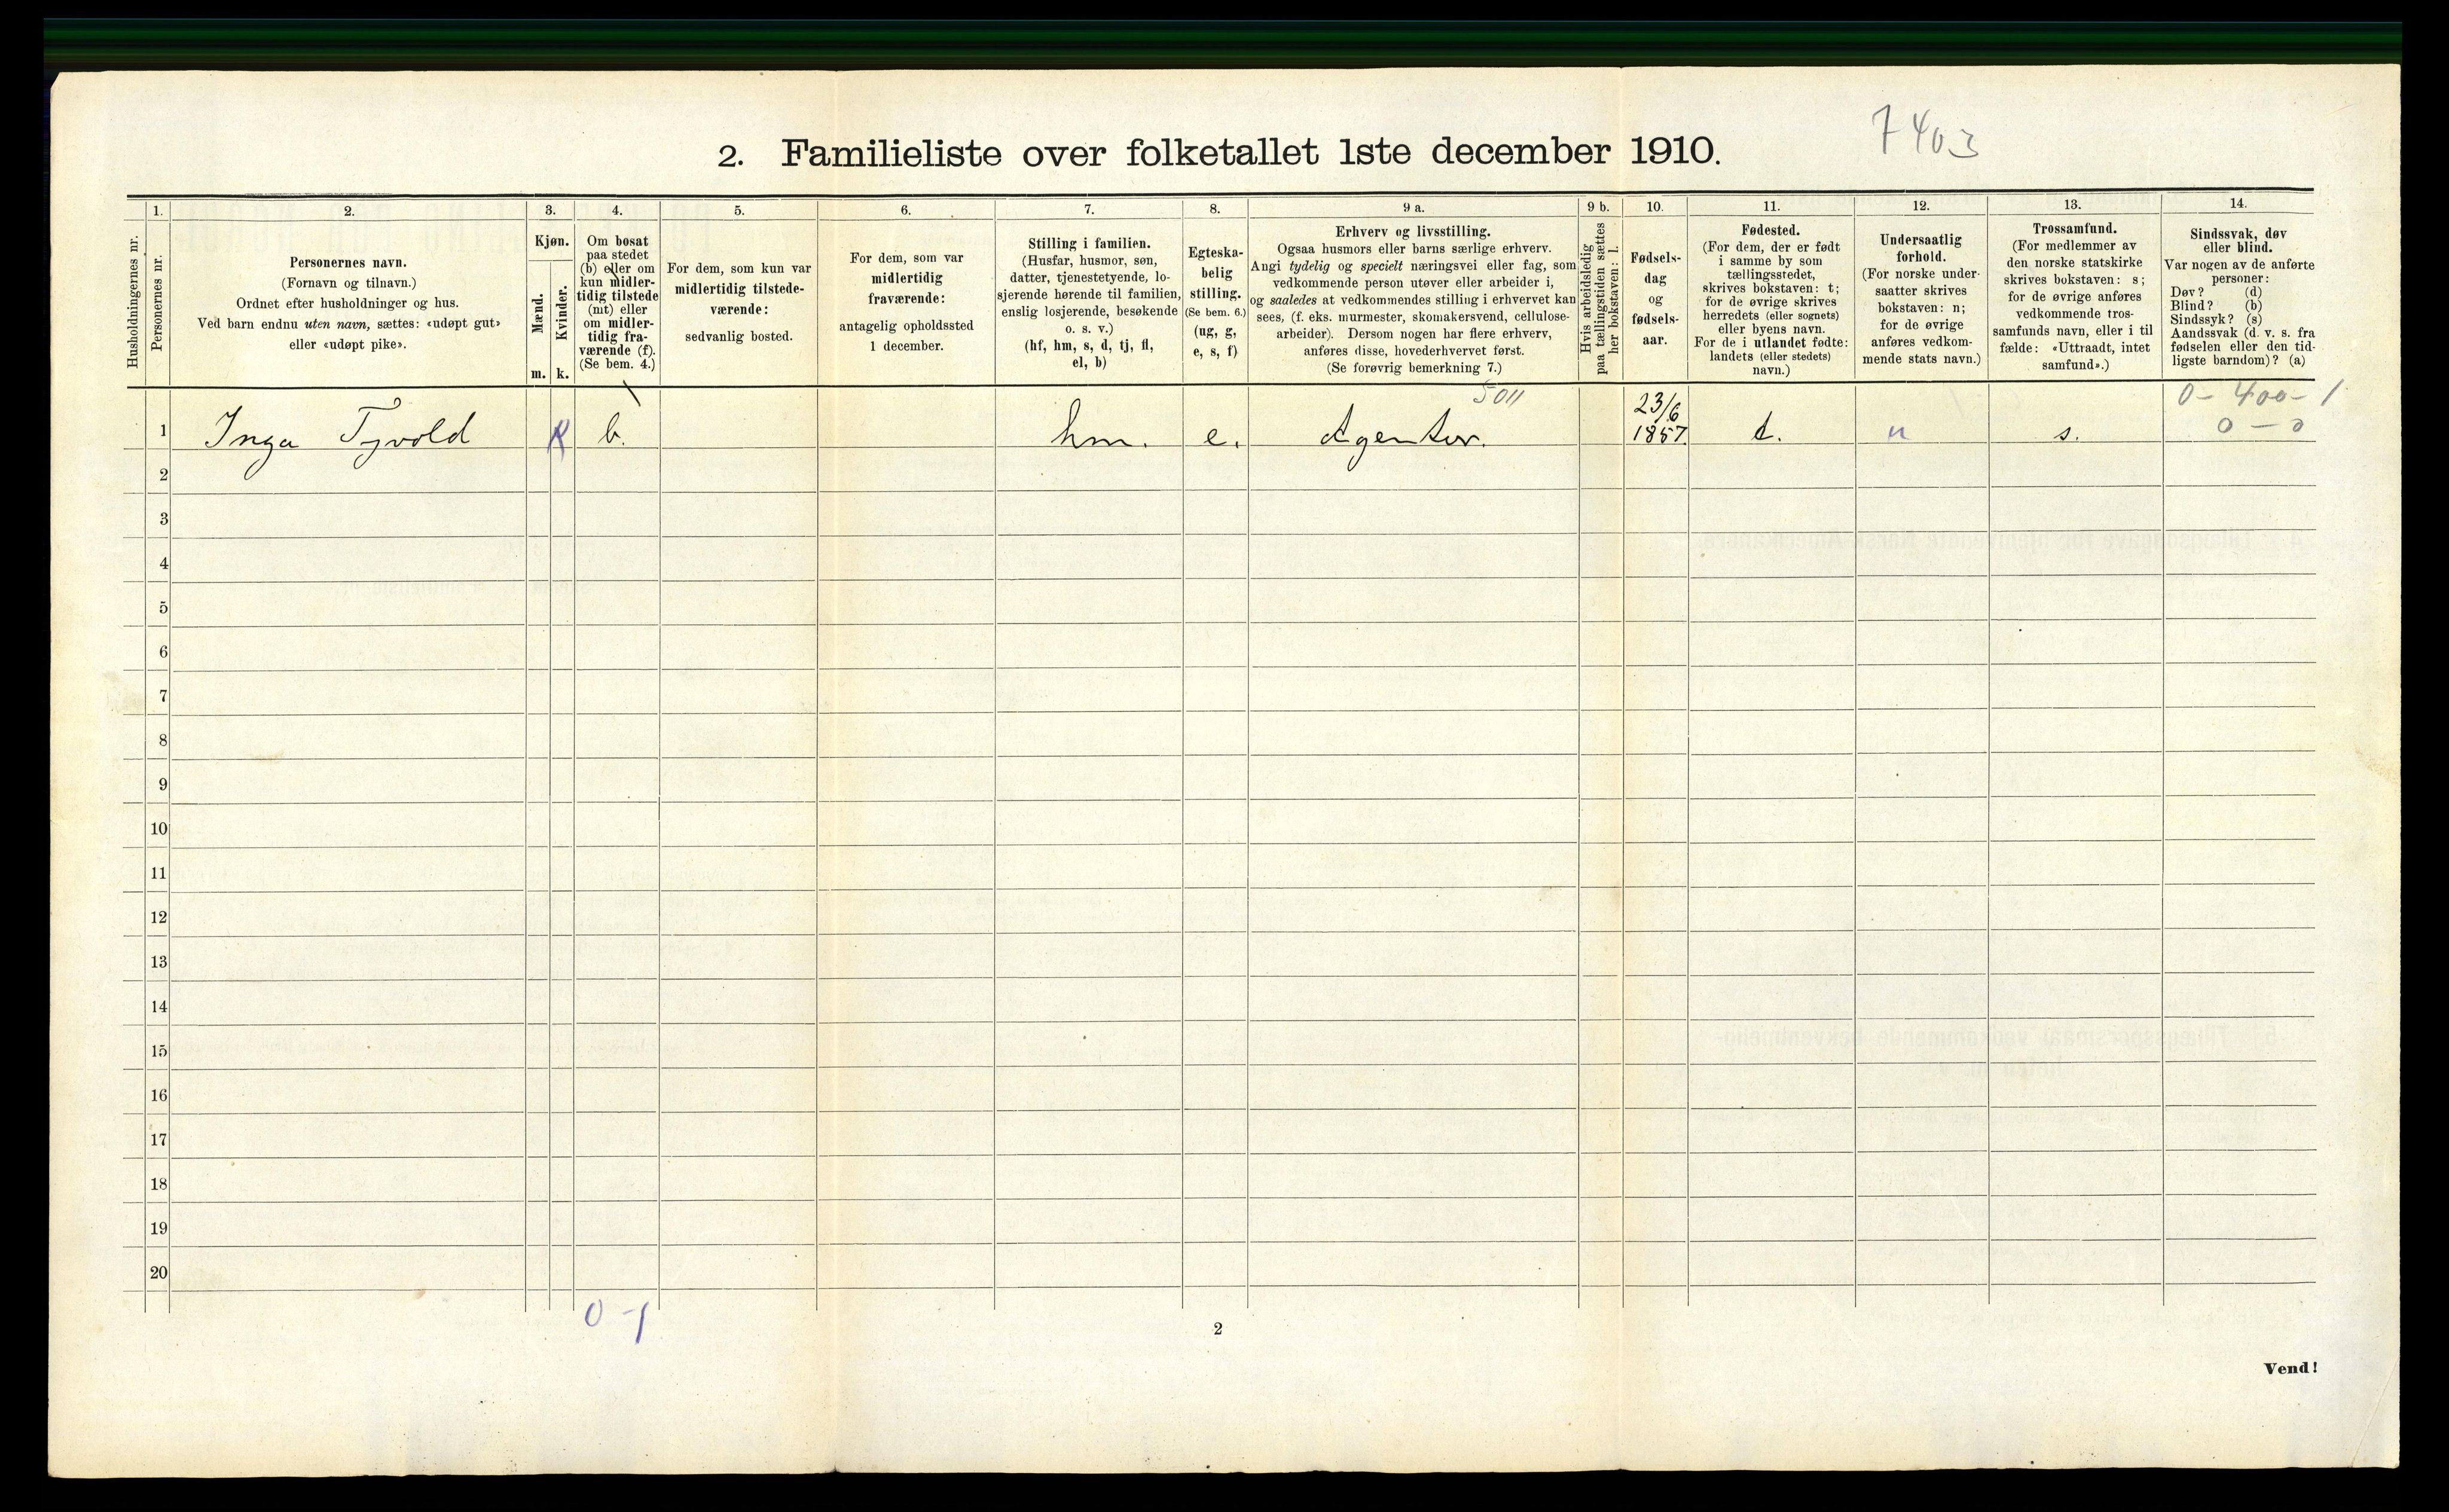 7403
2. Familieliste over folketallet 1ste december 1910.
Husholdningernes nr.
1.
Personernes nr.
2.
Personernes navn.
(Fornavn og tilnavn.)
Ordnet efter husholdninger og hus.
Ved barn endnu uten navn, sættes: «udøpt gut»
eller «udøpt pike».
3.
Kjøn.
Mænd.
Kvinder.
m. k.
4.
Om bosat
paa stedet
(b) eller om
kun midler-
tidig tilstede
(mt) eller
om midler-
tidig fra-
værende (f).
(Se bem. 4.)
5.
For dem, som kun var
midlertidig tilstede-
værende:
sedvanlig bosted.
6.
For dem, som var
midlertidig
fraværende:
antagelig opholdssted
1 december.
7.
Stilling i familien.
(Husfar, husmor, søn,
datter, tjenestetyende, lo-
sjerende hørende til familien,
enslig losjerende, besøkende
o. s. v.)
(hf, hm, s, d, tj, fl,
el, b)
8.
Egteska-
belig
stilling.
(Se bem. 6.)
(ug, g,
e, s, f)
9 a.
Erhverv og livsstilling.
Ogsaa husmors eller barns særlige erhverv.
Angi tydelig og specielt næringsvei eller fag, som
vedkommende person utøver eller arbeider i,
og saaledes at vedkommendes stilling i erhvervet kan
sees, (f. eks. murmester, skomakersvend, cellulose-
arbeider). Dersom nogen har flere erhverv,
anføres disse, hovederhvervet først.
(Se forøvrig bemerkning 7.)
9 b.
Hvis arbeidsledig
paa tællingstiden sættes
her bokstaven: l.
10.
Fødsels-
dag
og
fødsels-
aar.
11.
Fødested.
(For dem, der er født
i samme by som
tællingsstedet,
skrives bokstaven: t;
for de øvrige skrives
herredets (eller sognets)
eller byens navn.
For de i utlandet fødte:
landets (eller stedets)
navn.)
12.
Undersaatlig
forhold.
(For norske under-
saatter skrives
bokstaven: n;
for de øvrige
anføres vedkom-
mende stats navn.)
13.
Trossamfund.
(For medlemmer av
den norske statskirke
skrives bokstaven: s;
for de øvrige anføres
vedkommende tros-
samfunds navn, eller i til
fælde: «Uttraadt, intet
samfund».)
14.
Sindssvak, døv
eller blind.
Var nogen av de anførte
personer:
Døv? (d)
Blind? (b)
Sindssyk? (s)
Aandssvak (d. v. s. fra
fødselen eller den tid-
ligste barndom)? (a)
5011
0 - 400 - 1
0 - 0
1 Inga Tyvold k b. hm. e. Agentur. 23/6 1857 t. n s.
2
3
4
5
6
7
8
9
10
11
12
13
14
15
16
17
18
19
20
0 - 1
2
Vend!